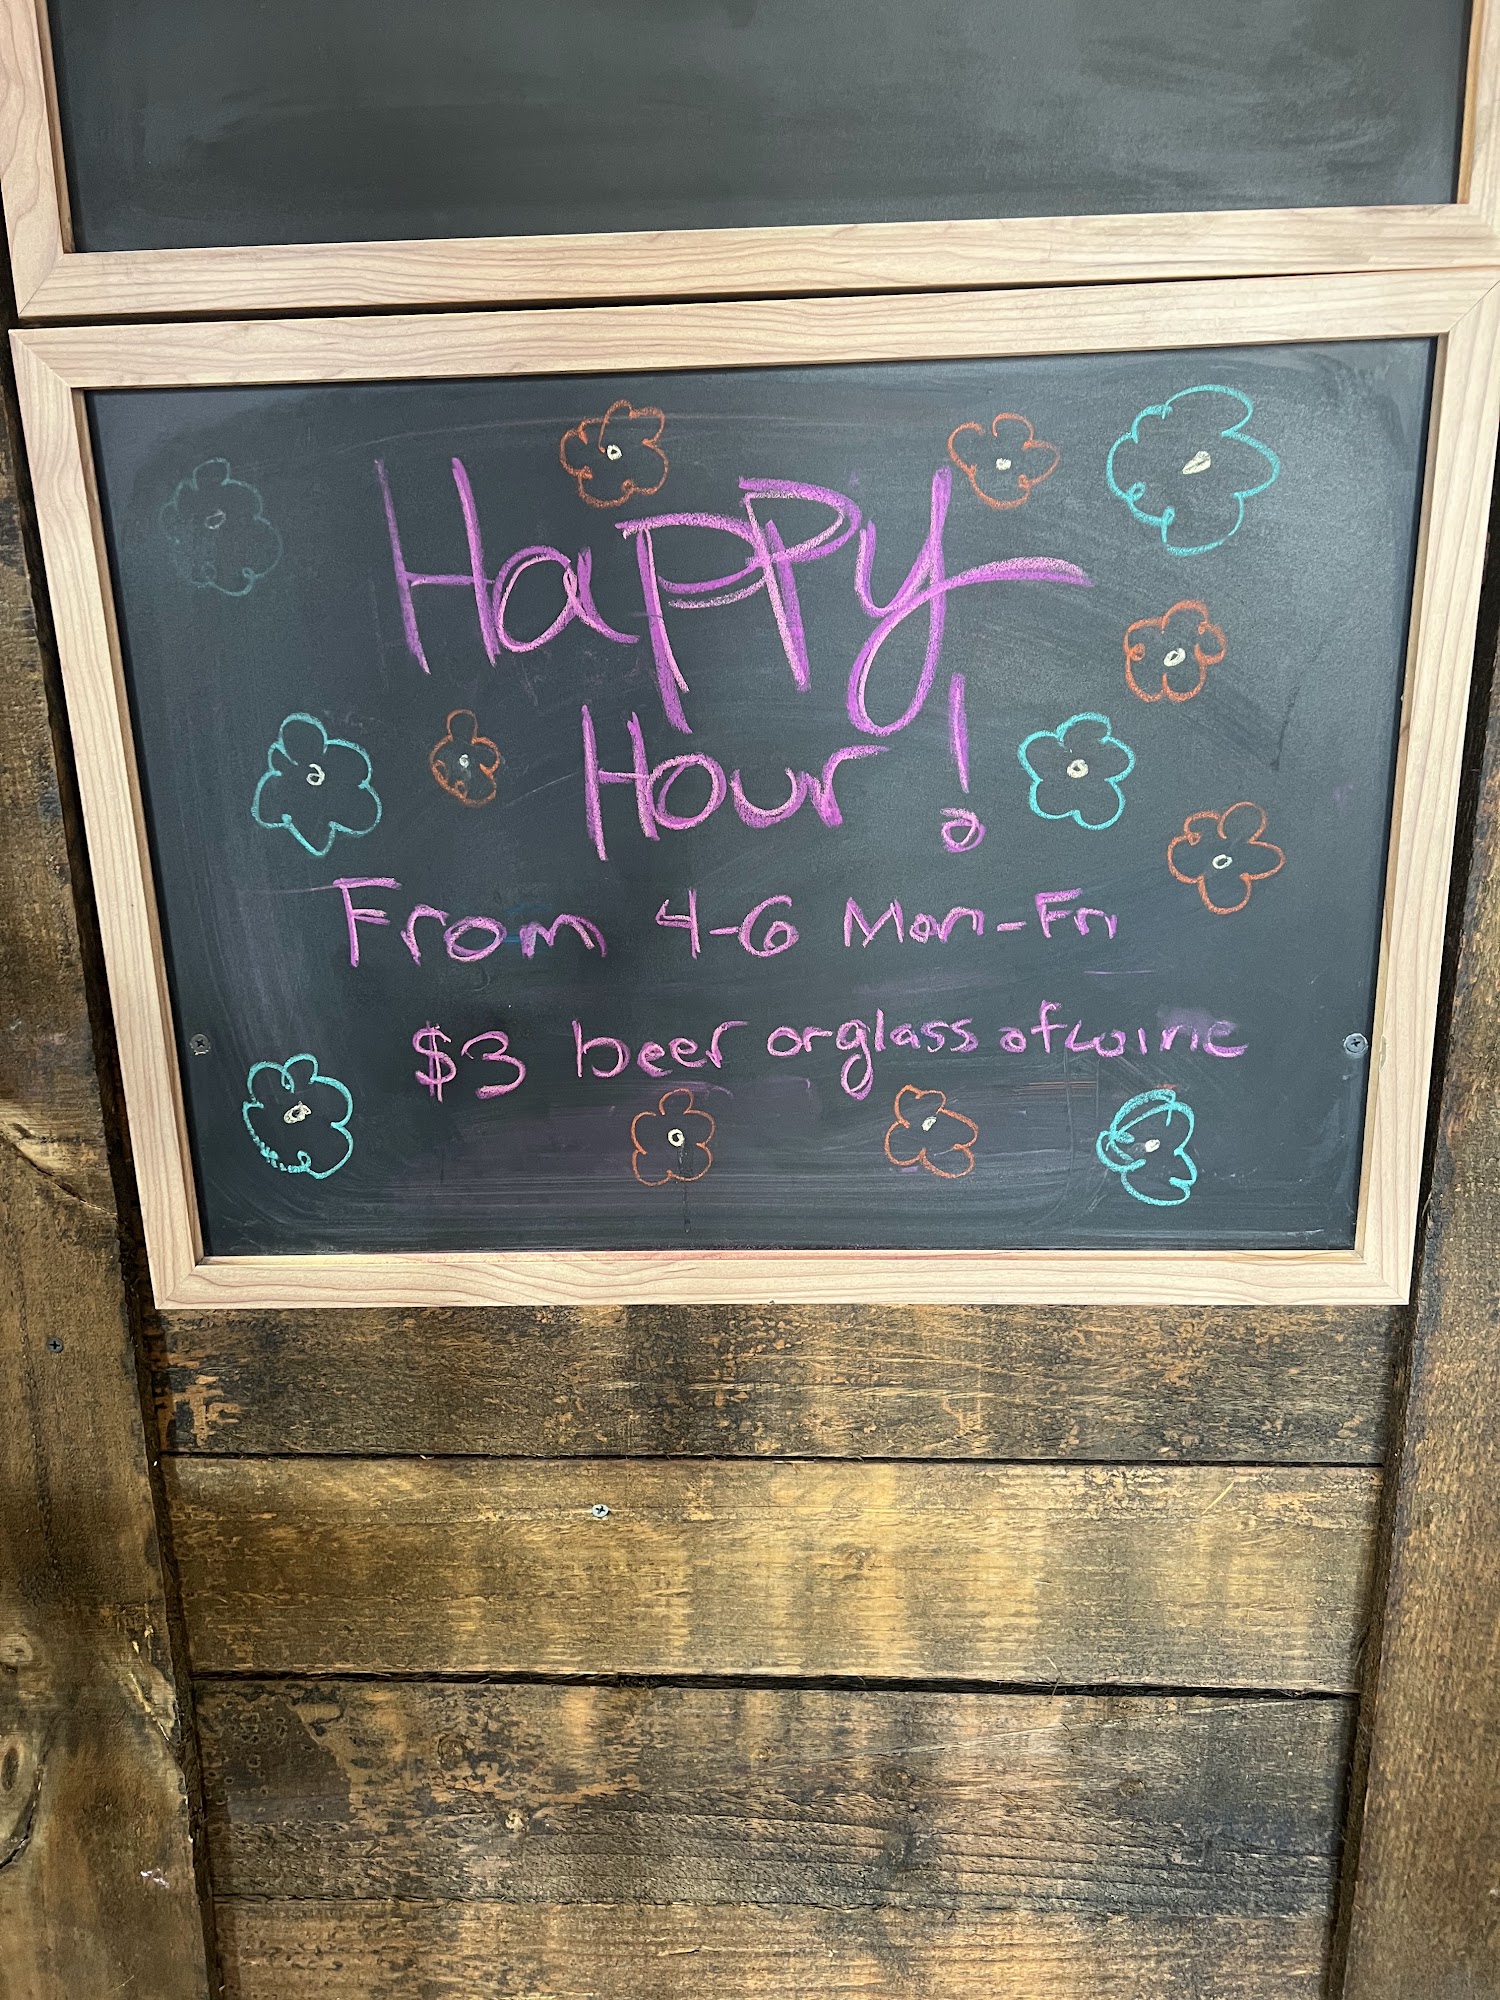 Happy
Hour!
From 4-6 Mon-Fri
$3 beer or glass of wine